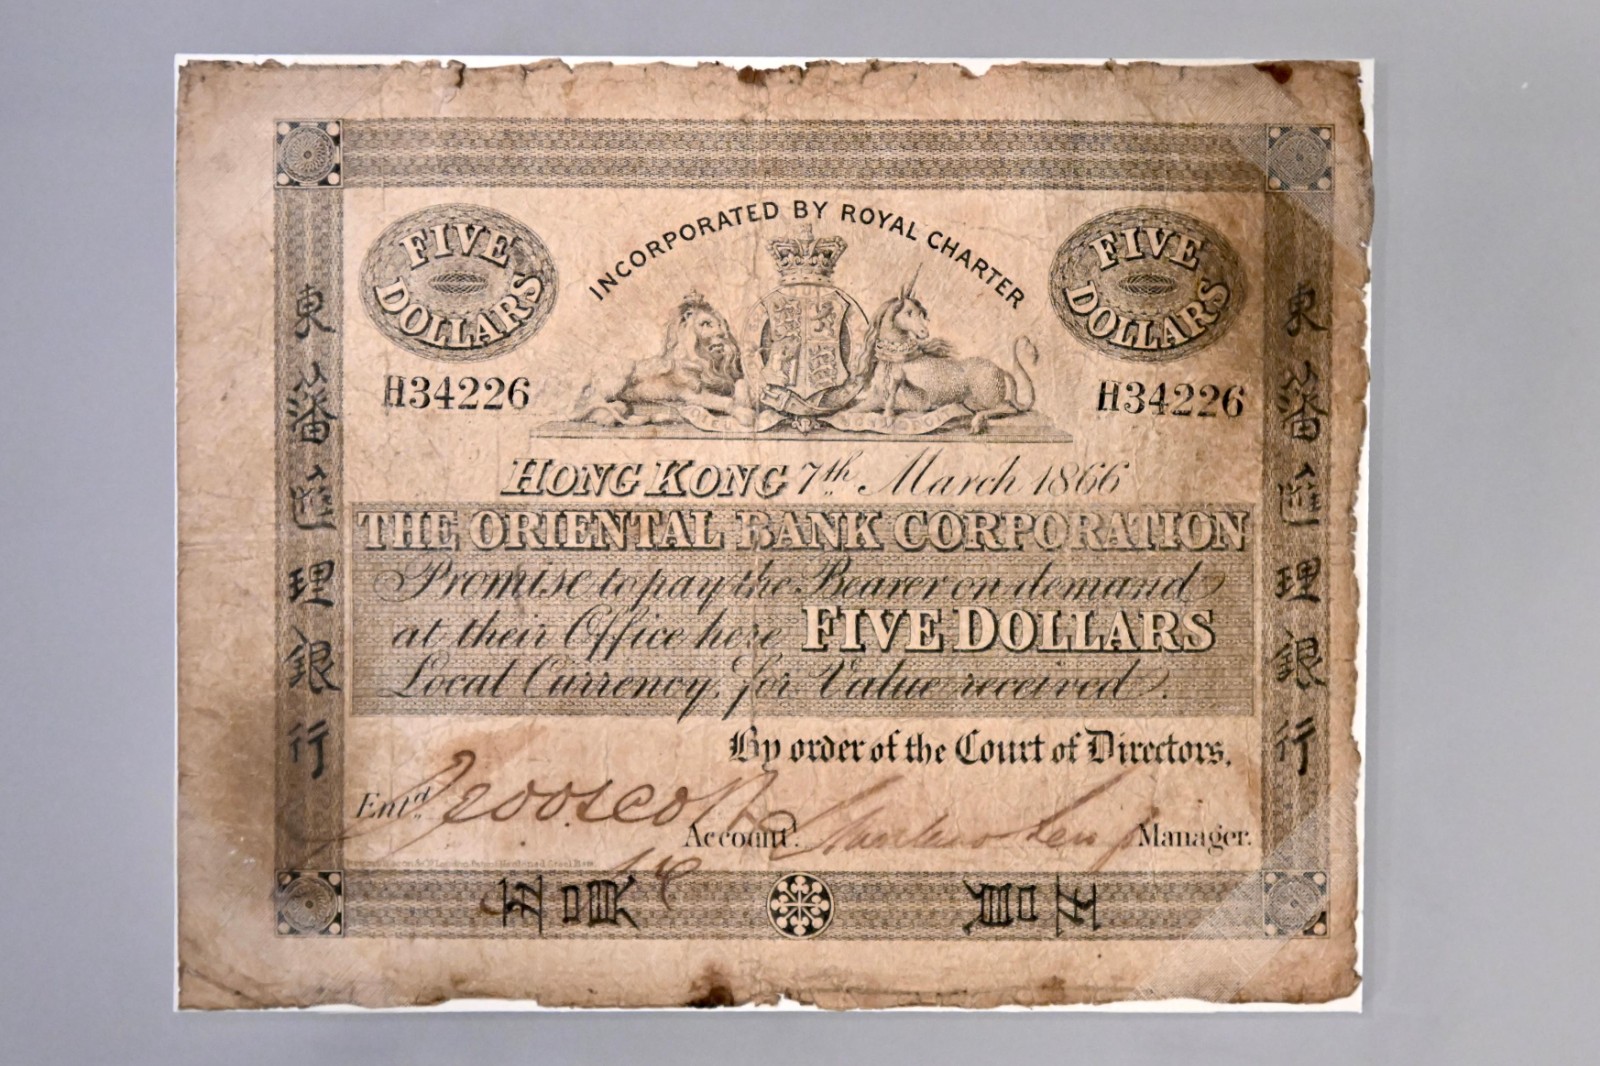 INCORPORATED BY ROYAL CHARTER
FIVE DOLLARS
FIVE DOLLARS
H34226
H34226
HONG KONG 7th March 1866
THE ORIENTAL BANK CORPORATION
Promise to pay the Bearer on demand
at their Office here FIVE DOLLARS
Local Currency, for Value received.
By order of the Court of Directors,
Entd.
Accountt.
Manager.
東藩匯理銀行
東藩匯理銀行
五員
五員